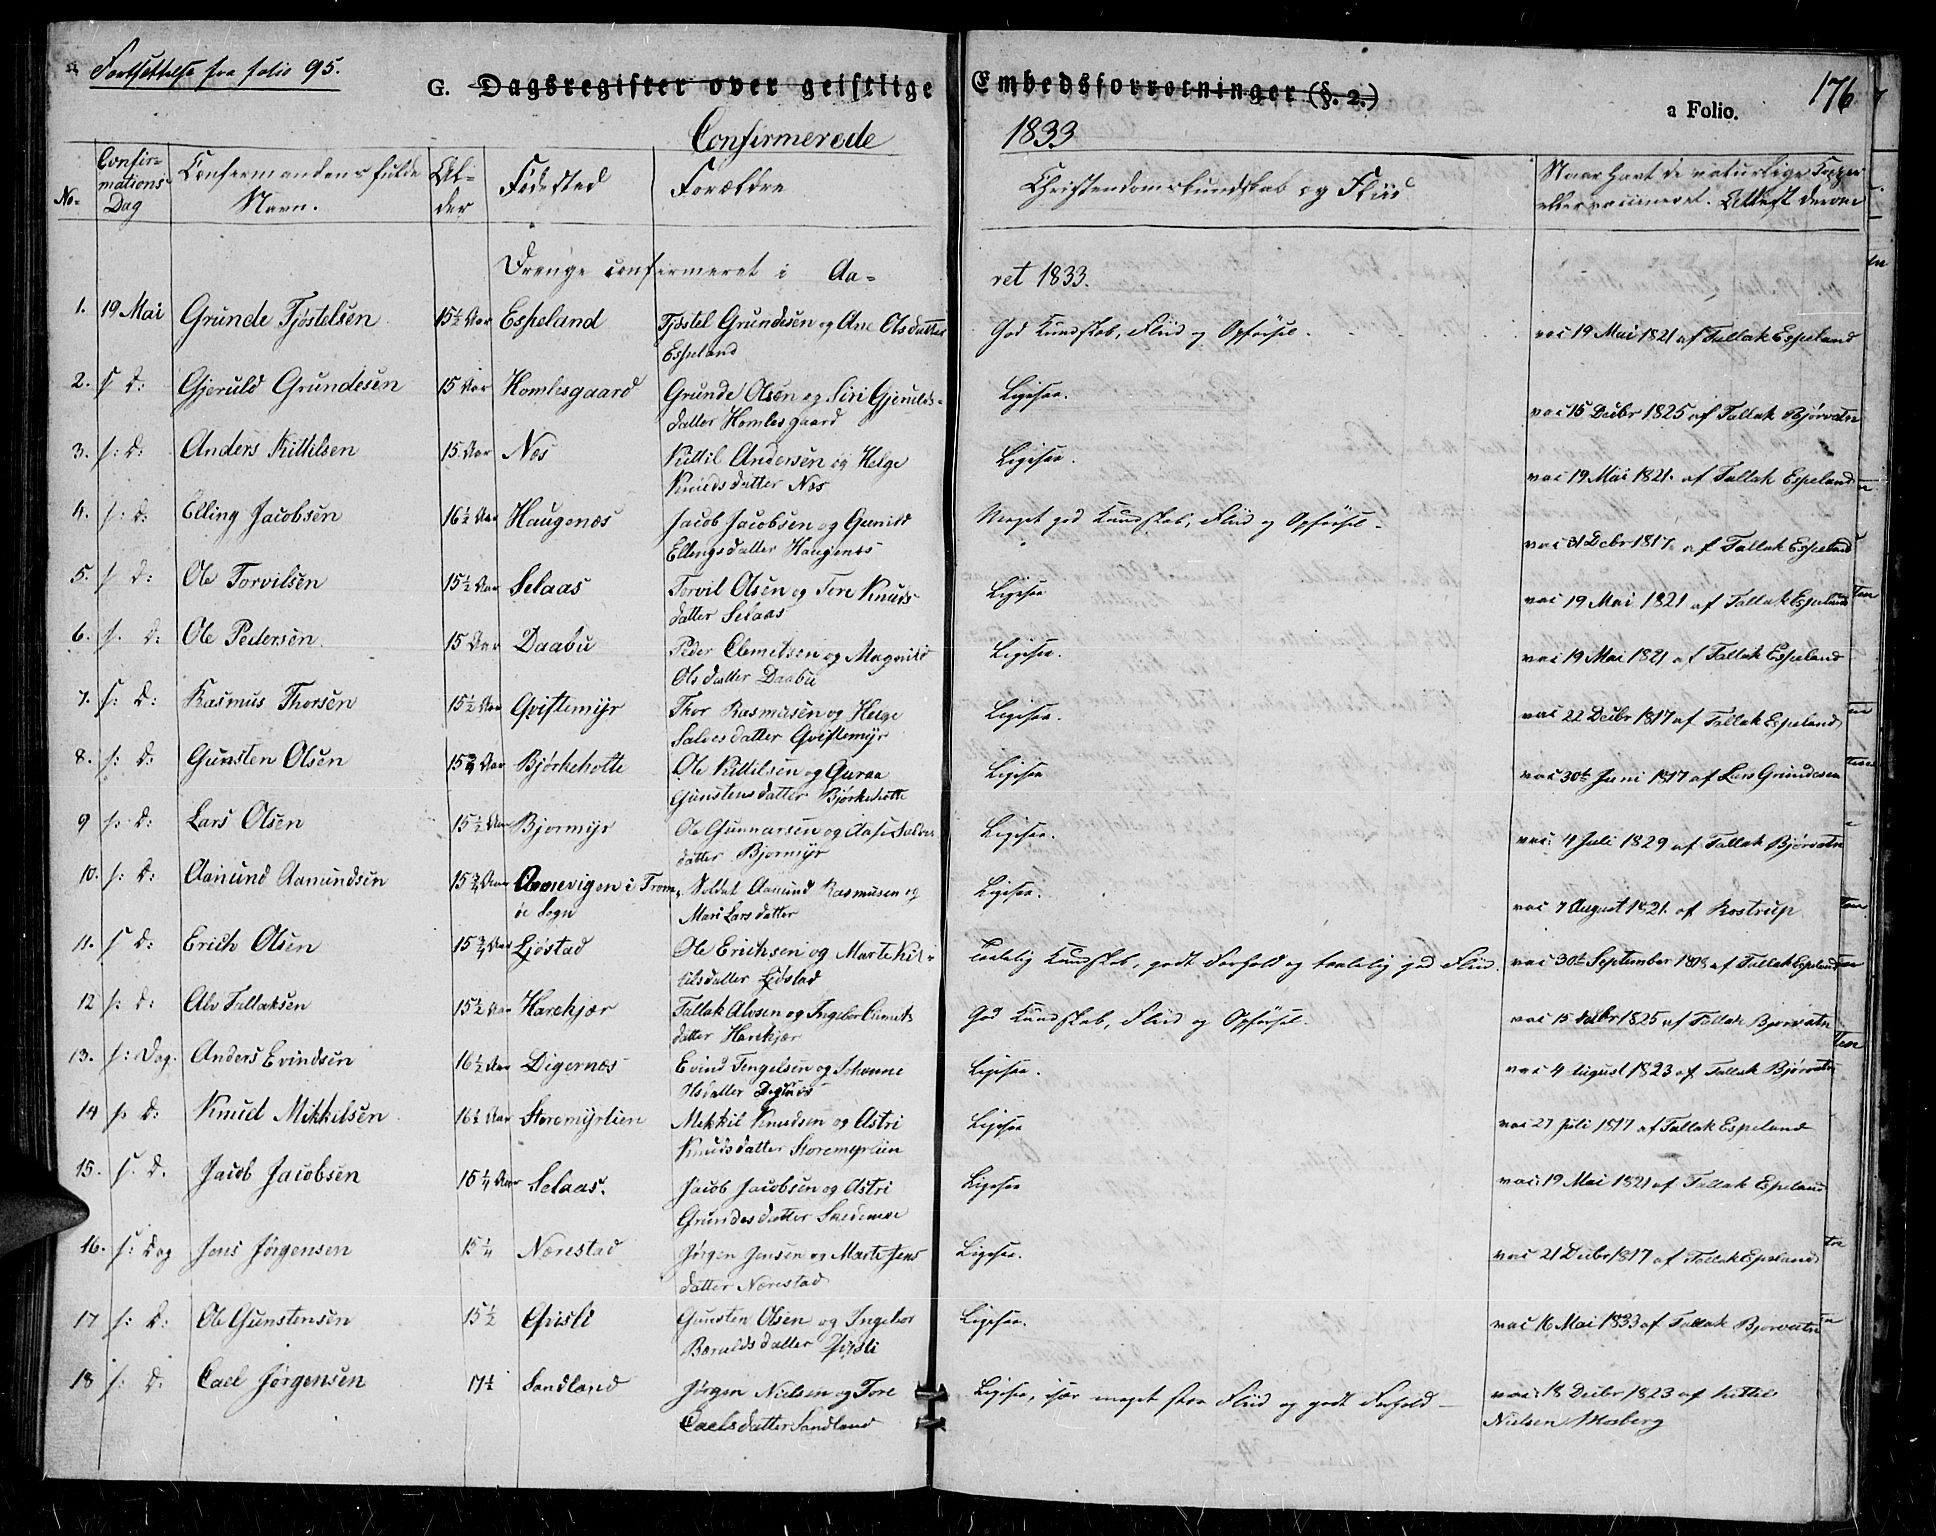 Fortsættelse fra folio 95.
G. Dagsregister over geistlige Embedsforretninger (§. 2.)
a Folio. 176
Confirmerede 1833
No- Confir-mations Dag Confirmandens fulde Navn. Al-der Fødested Forældre Christendomskundskab og Fliid Naar havt de naturlige Kopper eller vaccineret. Attest derom
Drenge confirmeret i Aa-ret 1833.
1. 19 Mai Grunde Tjøstelsen 15½ Aar Espeland Tjøstel Grundesen og Ane Olsdatter God Kundskab, Fliid og Opførsel. vac 19 Mai 1821 af Tallak Espeland
Espeland
2. s D: Gjeruld Grundesen 15 Aar Homlesgaard Grunde Olsen og Siri Gjerulds- Ligesaa. vac 15 Decbr 1825 af Tallak Bjørvatn
datter Homlesgaard
3. s: D: Anders Kittilsen 15 Aar Næs Kittil Andersen og Helge Ligesaa. vac 19 Mai 1821. af Tallak Espeland
Knudsdatter Næs
4. s: D: Elling Jacobsen 16½ Aar Haugenæs Jacob Jacobsen og Gunild Meget god Kundskab, Fliid og Opførsel. vac 31 Decbr 1817. af Tallak Espeland
Ellingsdatter Haugenæs
5. s D: Ole Torvilsen 15½ Aar Selaas Torvil Olsen og Tore Knuds Ligesaa vac 19 Mai 1821 af Tallak Espeland
datter Selaas
6. s. D: Ole Pedersen 15 Aar Daabu Peder Clemetsen og Magnild Ligesaa. vac 19 Mai 1821 af Tallak Espeland
Olsdatter Daabu
7. s: D: Rasmus Thorsen 15½ Aar Qviftemyr Thor Rasmusen og Helge Ligesaa. vac 22 Decbr 1817 af Tallak Espeland
Salvesdatter Qviftemyr
8. s: D: Gunsten Olsen 15¾ Aar Bjørkeholte Ole Kittilsen og Guroe Ligesaa vac 30te Juni 1817 af Lars Grundesen
Gunstensdatter Bjørkeholte
9 s: D: Lars Olsen 15½ Aar Bjormyr Ole Gunnarsen og Aase Salves Ligesaa. vac: 4 Juli 1829 af Tallak Bjørvatn
datter Bjormyr
10. s: D: Aanund Aanundsen 15¾ Aar Arnevigen i Trom- Soldat Aanund Rasmusen og Ligesaa. vac 7 August 1821. af Rostrup
øe Sogn Mari Larsdatter
11. s D: Erich Olsen 15¾ Aar Ljøstad Ole Erichsen og Marte Kit- Taalelig Kundskab, godt Forhold og taalelig god Fliid. vac 30te September 1818 af Tallak Espeland
tilsdatter Ljøstad
12 s: D: Alv Tallaksen 15½ Aar Harekjær Tallak Alvsen og Ingebor Clemets God Kundskab, Fliid og Opførsel. vac 15 Decbr 1825 af Tallak Bjørvatn
datter Harekjær
13. s: Dag. Anders Evindsen 16½ Aar Digernæs Evind Tengelsen og Johanne Ligesaa. vac 4 August 1823 af Tallak Bjørvatn
Olsdatter Digernæs
14 s. D: Knud Mikkilsen 16½ Aar Storemyrlien Mikkil Knudsen og Astri Ligesaa vac 27 Juli 1817 af Tallak Espeland
Knudsdatter Storemyrlien
15. s. D. Jacob Jacobsen 16¼ Aar Selaas. Jacob Jacobsen og Astri Ligesaa vac: 19 Mai 1821 af Tallak Espeland
Grundesdatter
16. s: Dag Jens Jørgensen 15¼ Nærestad Jørgen Jensen og Marte Jens Ligesaa. vac 21 Decbr 1817 af Tallak Espeland
datter Nærestad
17 s: D: Ole Gunstensen 15½ Gjisli Gunsten Olsen og Ingebor Ligesaa. vac 16 Mai 1833 af Tallak Bjørvatn
Baraldsdatter Gjisli
18 s: D. Cael Jørgensen 17½ Sandland Jørgen Nielsen og Tore Ligesaa, især meget stor Fliid og godt Forhold vac: 18 Decbr 1823 af Kittil
Caelsdatter Sandland Nielsen Moberg